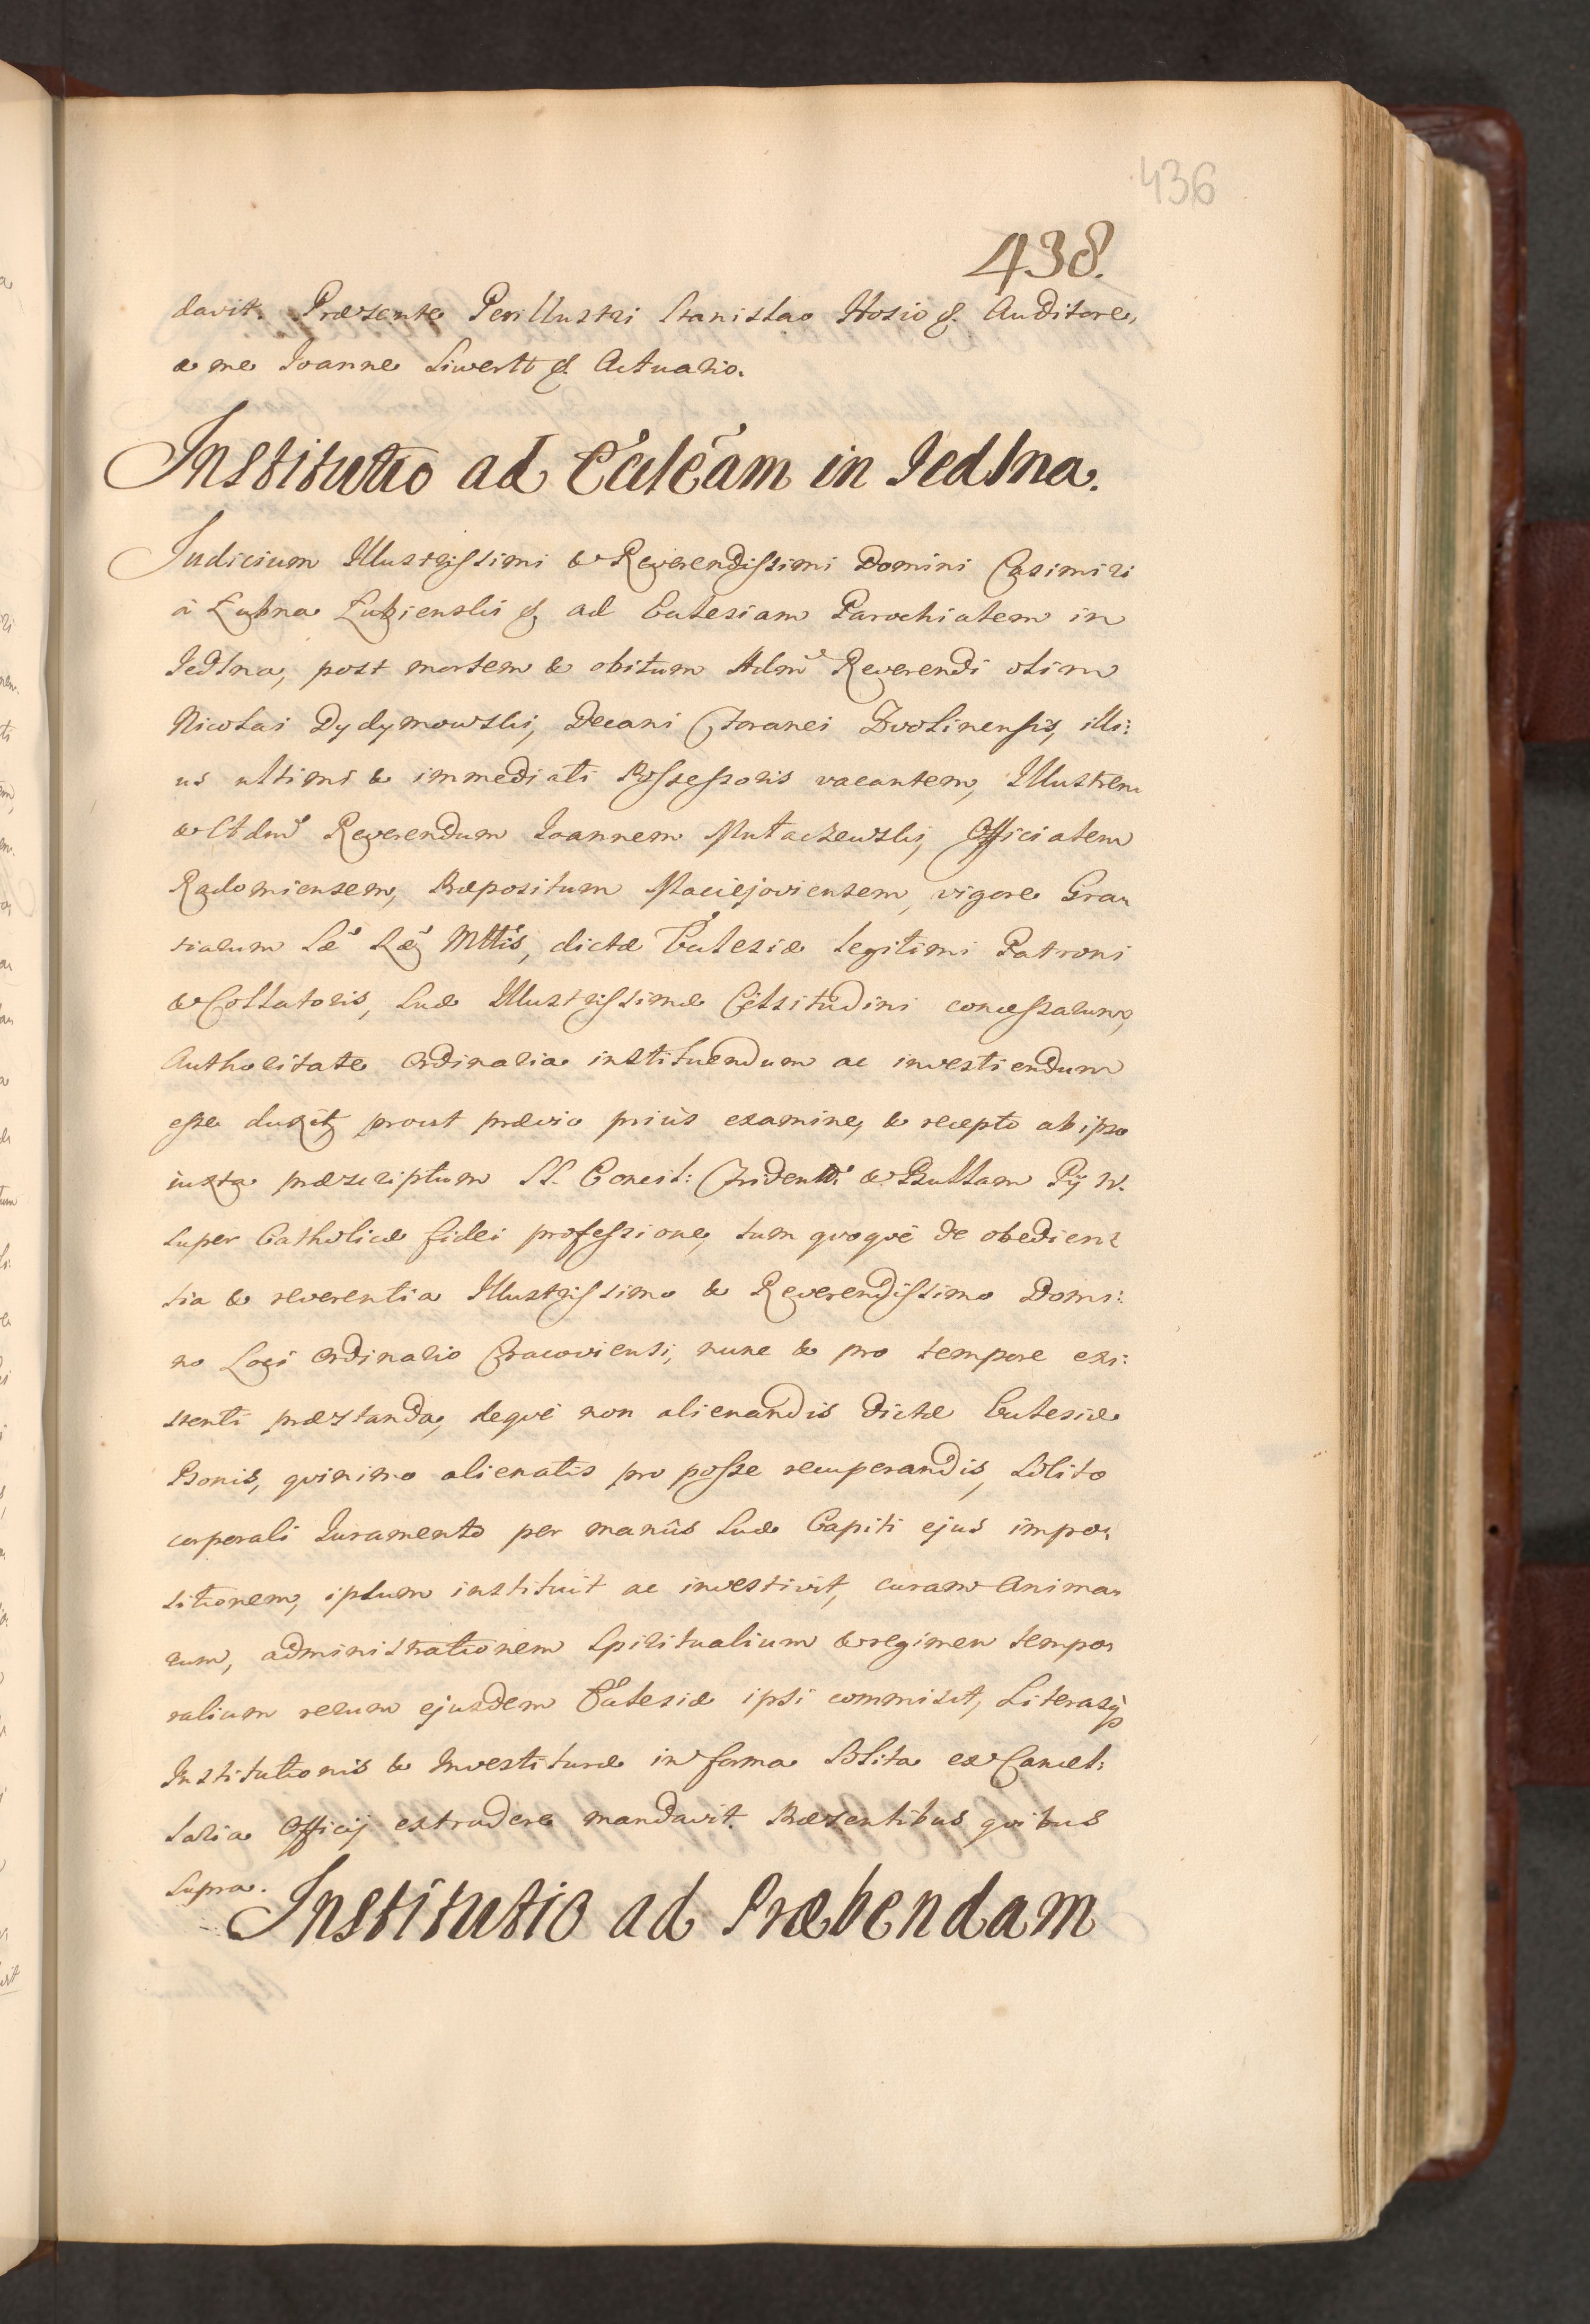 436
438.
davit. Præsente Perillustri Stanislao Hosio &. Auditore,
& me Joanne Siwertt &. Actuario.
Institutio ad Ecclesam in Jedlna.
Judicium Illustrissimi & Reverendissimi Domini Casimiri
à Łubna Łubienski & ad Ecclesiam Parochialem in
Jedlna, post mortem & obitum Adm Reverendi olim
Nicolai Dydymowski, Decani Foranei Zvolinensis, illi:
us ultimi & immediati Possessoris vacantem, Illustrem
& Adm Reverendum Joannem Mułaczewski, Officialem
Radomiensem, Præpositum Maciejoviensem, vigore Gra-
tiarum Sæ Ræ Mttis, dictæ Ecclesiæ legitimi Patroni
& Collatoris, Suæ Illustrissimæ Celsitudini concessarum,
Authoritate Ordinaria instituendum ac investiendum
esse duxit, prout prævio priùs examine, & recepto ab ipso
iuxta præscriptum SS. Concil: Tridentt: & Bullam Pij IV.
super Catholicæ fidei professione, tum quoque de obedien-
tia & reverentia Illustrissimo & Reverendissimo Domi:
no Loci Ordinario Cracoviensi, nunc & pro tempore exi:
stenti præstanda, deque non alienandis dictæ Ecclesiæ
Bonis, quinimo alienatis pro posse recuperandis, solito
corporali Juramento per manûs suæ Capiti ejus impo-
sitionem, ipsum instituit ac investivit, curam Anima-
rum, administrationem Spiritualium & regimen tempo-
ralium rerum ejusdem Ecclesiæ ipsi commisit, Literasq
Institutionis & Investituræ in forma solita ex Cancel:
laria Officij extradere mandavit. Præsentibus quibus
supra.
Institutio ad Præbendam